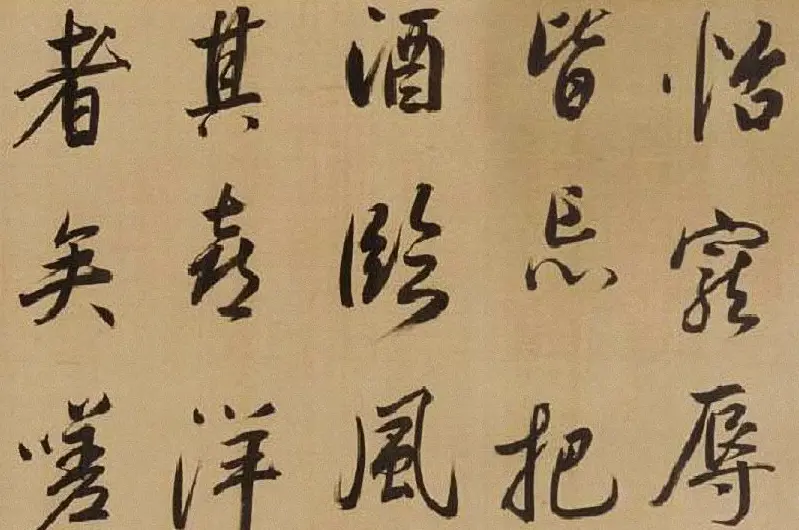 怡寵辱
皆忘把
酒臨風
其喜洋
者矣嗟